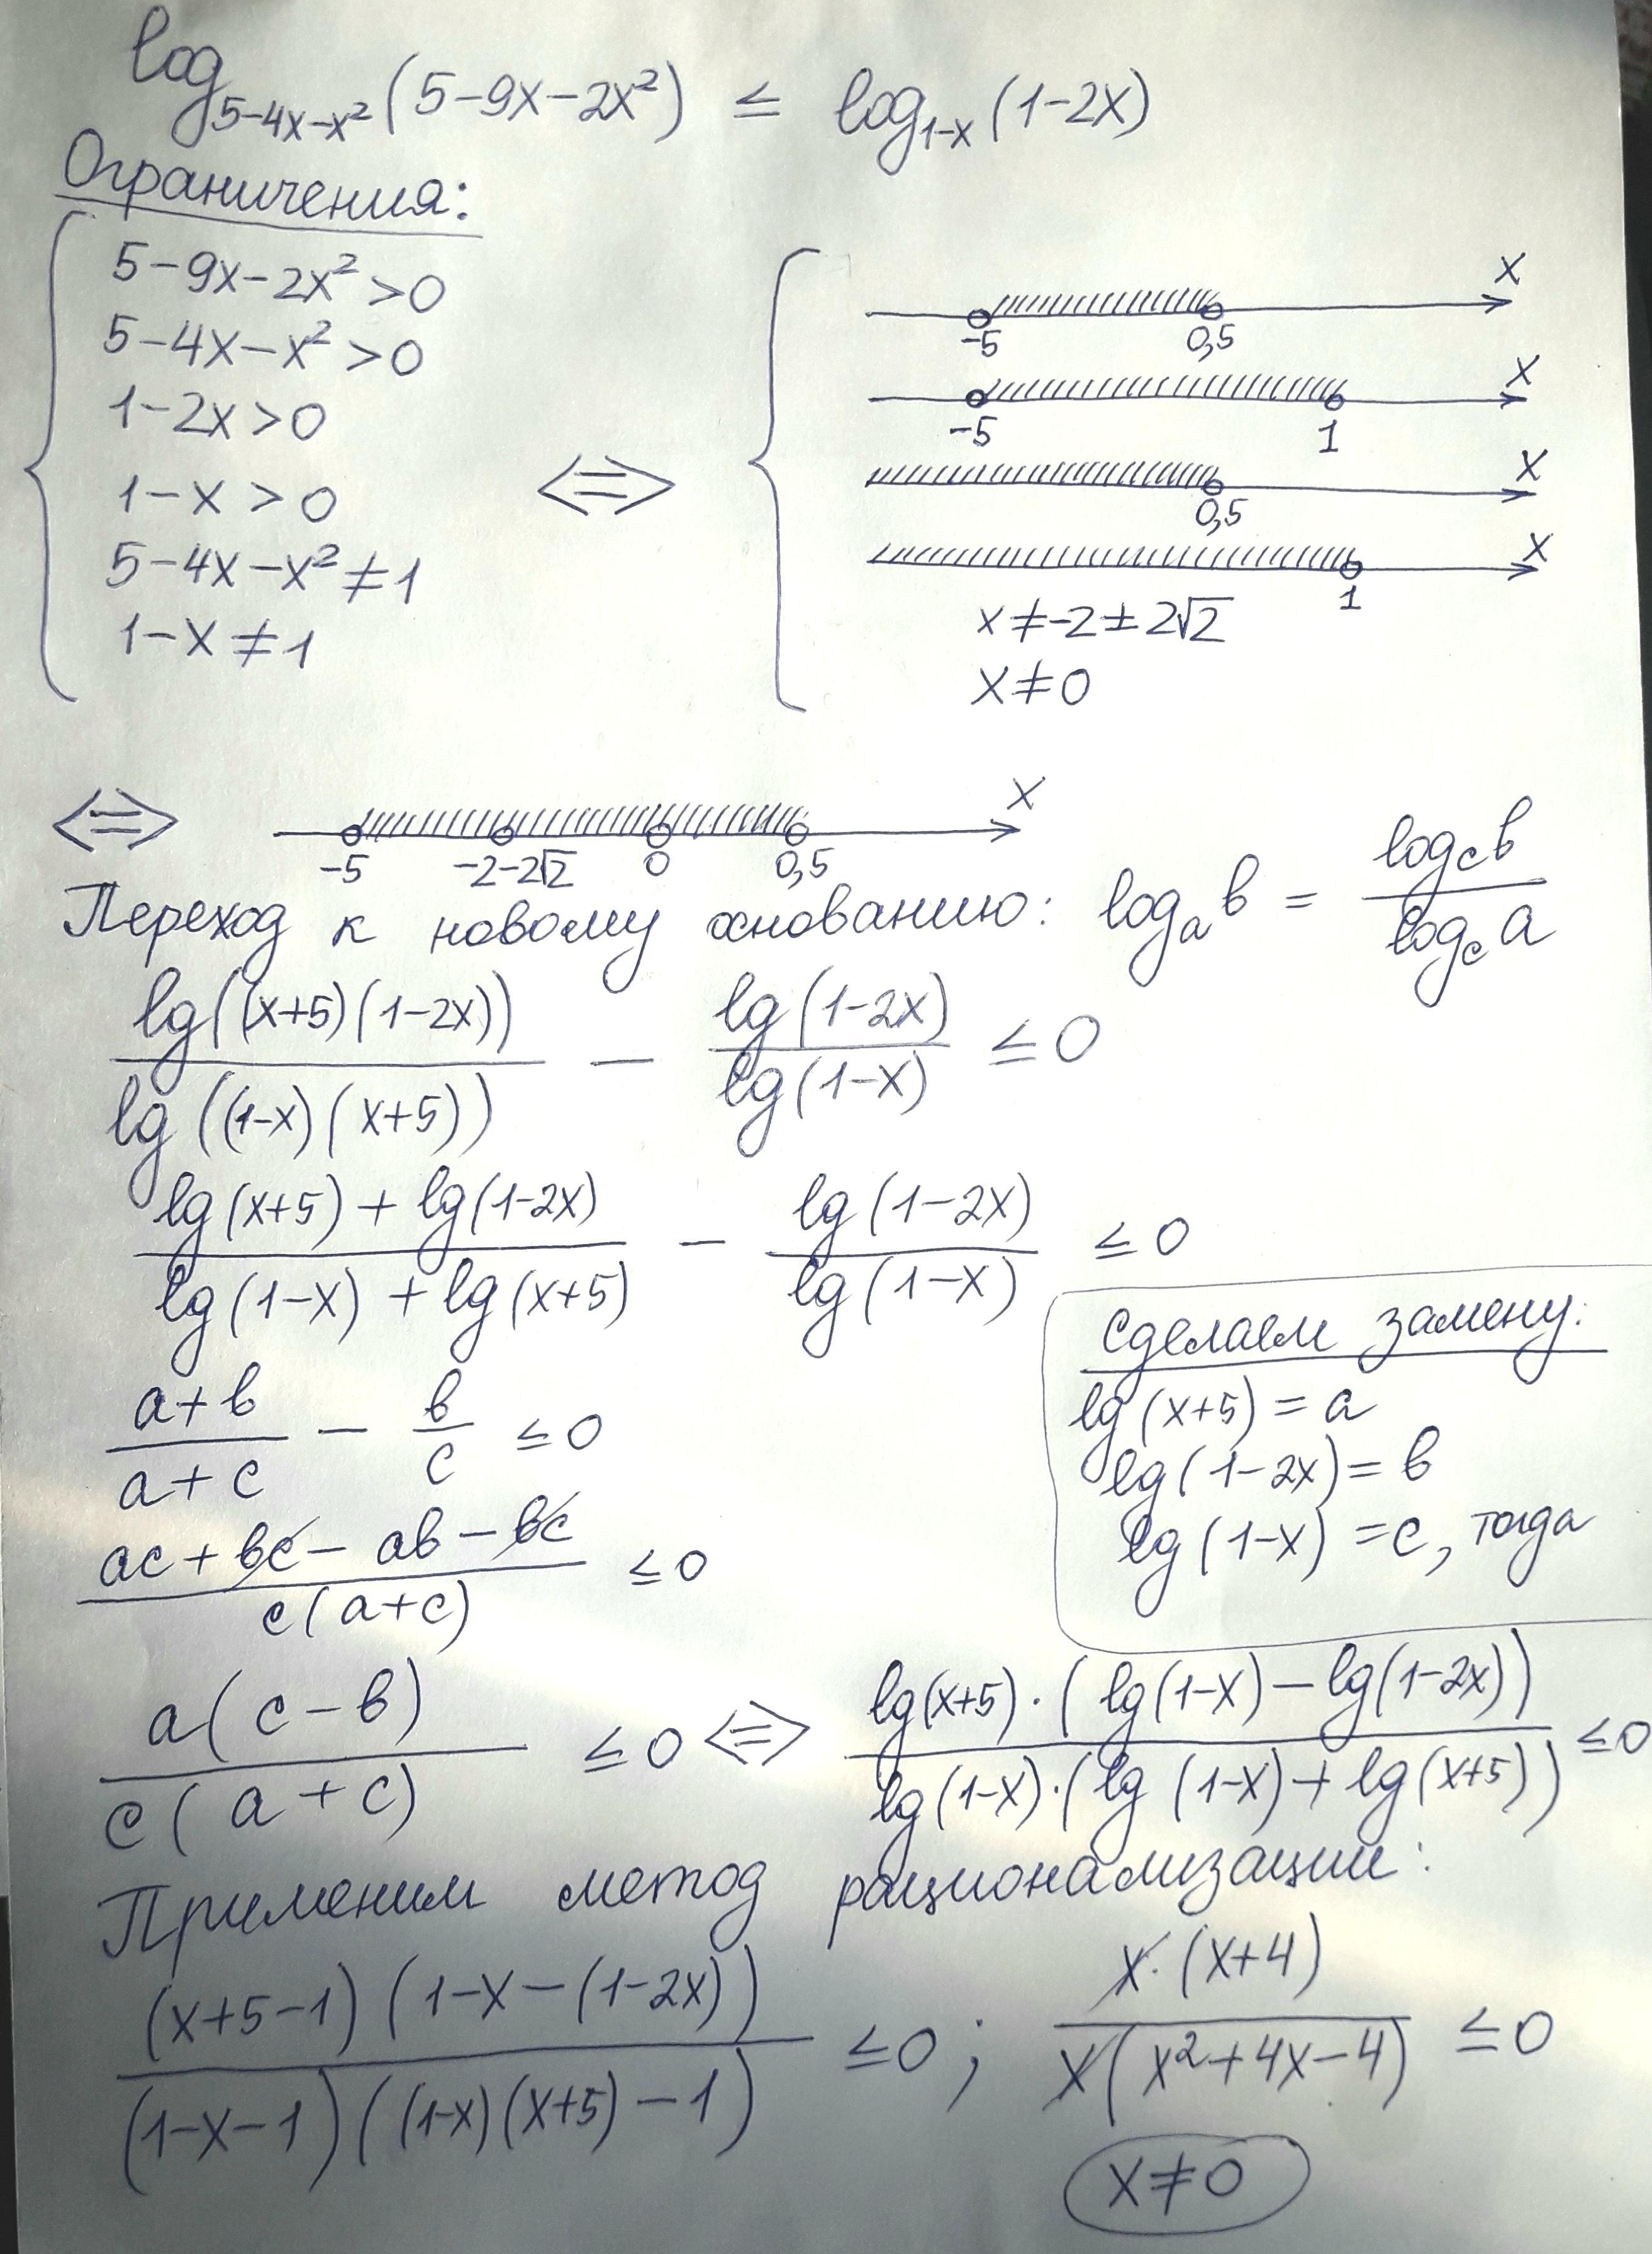 log₅₋₄ₓ₋ₓ²(5-9x-2x²) ≤ log₁₋ₓ(1-2x)
Ограничения:
5-9x-2x²>0
5-4x-x²>0
1-2x>0
1-x>0
5-4x-x²≠1
1-x≠1
⇔
x
-5 0,5
x
-5 1
x
0,5
x
1
x≠-2±2√2
x≠0
⇔ x
-5 -2-2√2 0 0,5
Переход к новому основанию: logₐb = log_c b / log_c a
lg((x+5)(1-2x)) / lg((1-x)(x+5)) - lg(1-2x) / lg(1-x) ≤0
(lg(x+5)+lg(1-2x)) / (lg(1-x)+lg(x+5)) - lg(1-2x) / lg(1-x) ≤0
сделаем замену:
lg(x+5)=a
lg(1-2x)=b
lg(1-x)=c, тогда
(a+b)/(a+c) - b/c ≤0
(ac+bc-ab-bc) / c(a+c) ≤0
a(c-b) / c(a+c) ≤0 ⇔ lg(x+5)·(lg(1-x)-lg(1-2x)) / lg(1-x)·(lg(1-x)+lg(x+5)) ≤0
Применим метод рационализации:
(x+5-1)(1-x-(1-2x)) / (1-x-1)((1-x)(x+5)-1) ≤0; x·(x+4) / x(x²+4x-4) ≤0
x≠0